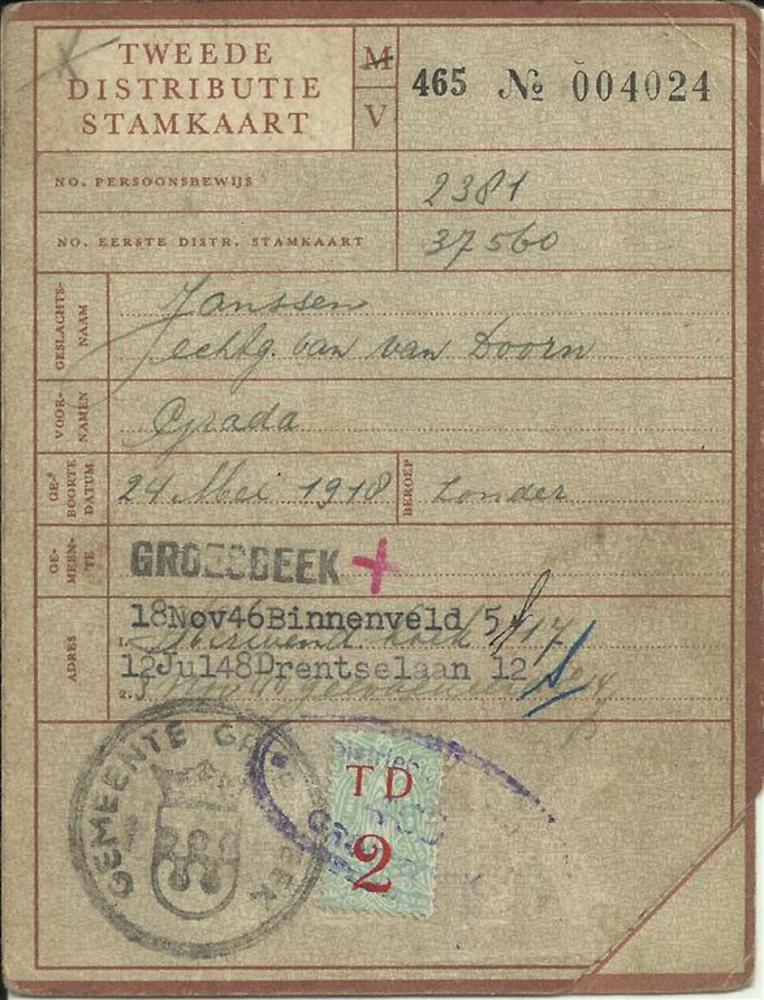 TWEEDE
DISTRIBUTIE
STAMKAART
M
V
465 № 004024
NO. PERSOONSBEWIJS
2381
NO. EERSTE DISTR. STAMKAART
37560
GESLACHTS-
NAAM
Janssen
echtg. van van Doorn
VOOR-
NAMEN
Grada
GE-
BOORTE
DATUM
24 Mei 1918
BEROEP
Zonder
GE-
MEEN-
TE
GROESBEEK
ADRES
18Nov46Binnenveld 5
1.
12Jul48Drentselaan 12
2.
GEMEENTE GROESBEEK
TD
2